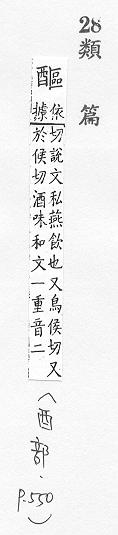 28 類篇
醧
依據
切說文私燕飲也又烏侯切又
於候切酒味和文一重音二
(酉部．p.550)